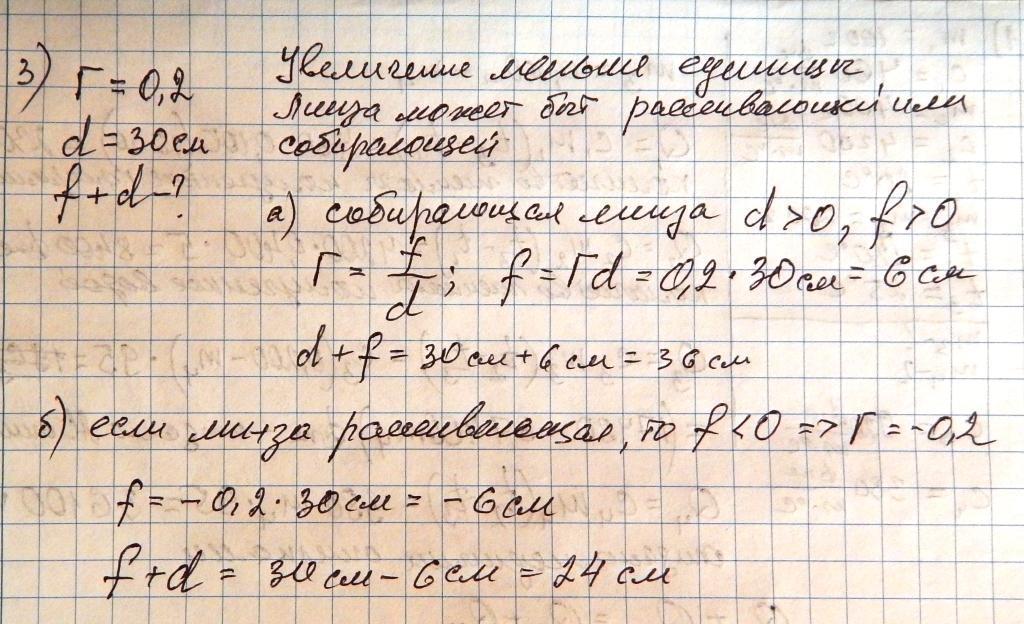 3) Г = 0,2
d = 30 см
f + d - ?
Увеличение меньше единицы
Линза может быт рассеивающей или
собирающей
а) собирающая линза d > 0, f > 0
Г = f/d; f = Гd = 0,2 · 30 см = 6 см
d + f = 30 см + 6 см = 36 см
б) если линза рассеивающая, то f < 0 => Г = -0,2
f = - 0,2 · 30 см = - 6 см
f + d = 30 см - 6 см = 24 см